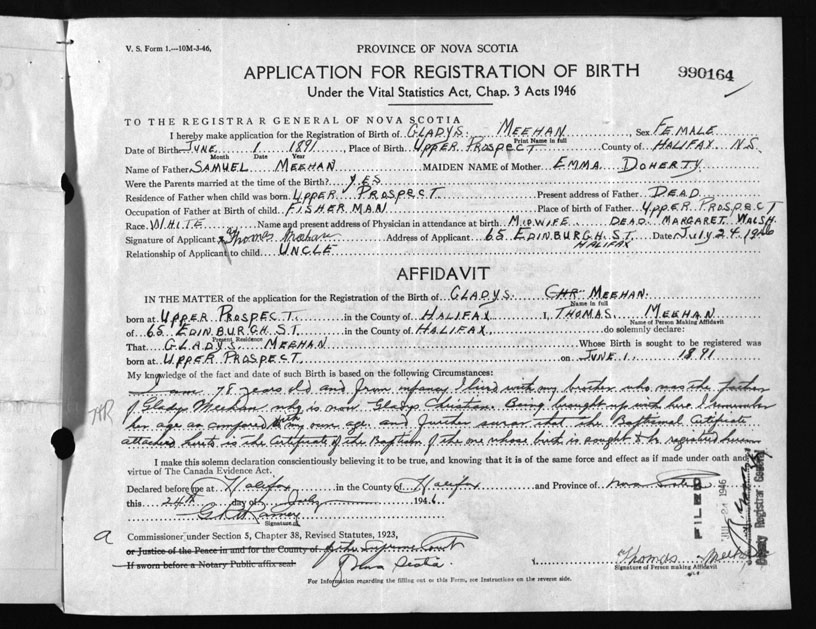 V. S. Form 1.—10M-3-46,
PROVINCE OF NOVA SCOTIA
APPLICATION FOR REGISTRATION OF BIRTH
990164
Under the Vital Statistics Act, Chap. 3 Acts 1946
TO THE REGISTRAR GENERAL OF NOVA SCOTIA
I hereby make application for the Registration of Birth of GLADYS MEEHAN, Sex FEMALE
Print Name in full
Date of Birth JUNE 1 1891, Place of Birth UPPER PROSPECT County of HALIFAX N.S.
Month Date Year
Name of Father SAMUEL MEEHAN MAIDEN NAME of Mother EMMA DOHERTY
Were the Parents married at the time of the Birth? YES
Residence of Father when child was born UPPER PROSPECT Present address of Father DEAD
Occupation of Father at Birth of child FISHERMAN Place of birth of Father UPPER PROSPECT
Race WHITE Name and present address of Physician in attendance at birth MIDWIFE DEAD MARGARET WALSH
Signature of Applicant Thomas Meehan Address of Applicant 65 EDINBURGH ST HALIFAX Date July 24 1946
Relationship of Applicant to child UNCLE
AFFIDAVIT
IN THE MATTER of the application for the Registration of the Birth of GLADYS CHR MEEHAN
Name in full
born at UPPER PROSPECT in the County of HALIFAX I, THOMAS MEEHAN
Name of Person Making Affidavit
of 65 EDINBURGH ST in the County of HALIFAX do solemnly declare:
Present Residence
That GLADYS MEEHAN Whose Birth is sought to be registered was
born at UPPER PROSPECT on JUNE 1 1891
My knowledge of the fact and date of such Birth is based on the following Circumstances:
I am 78 years old and from infancy I lived with my brother who was the father
of Gladys Meehan who is now Gladys Christian. Being brought up with her I remember
her age as compared with my own age and further swear that the Baptismal Certificate
attached hereto is the Certificate of the Baptism of the one whose birth is sought to be registered herein
I make this solemn declaration conscientiously believing it to be true, and knowing that it is of the same force and effect as if made under oath and
virtue of The Canada Evidence Act.
Declared before me at Halifax in the County of Halifax and Province of Nova Scotia
this 24th day of July 1946
Signature
FILED
JUL 24 1946
Deputy Registrar General
a Commissioner under Section 5, Chapter 38, Revised Statutes, 1923,
or Justice of the Peace in and for the County of of the Supreme Court
If sworn before a Notary Public affix seal Nova Scotia.
Thomas Meehan
Signature of Person making Affidavit
For Information regarding the filling out of this Form, see Instructions on the reverse side.